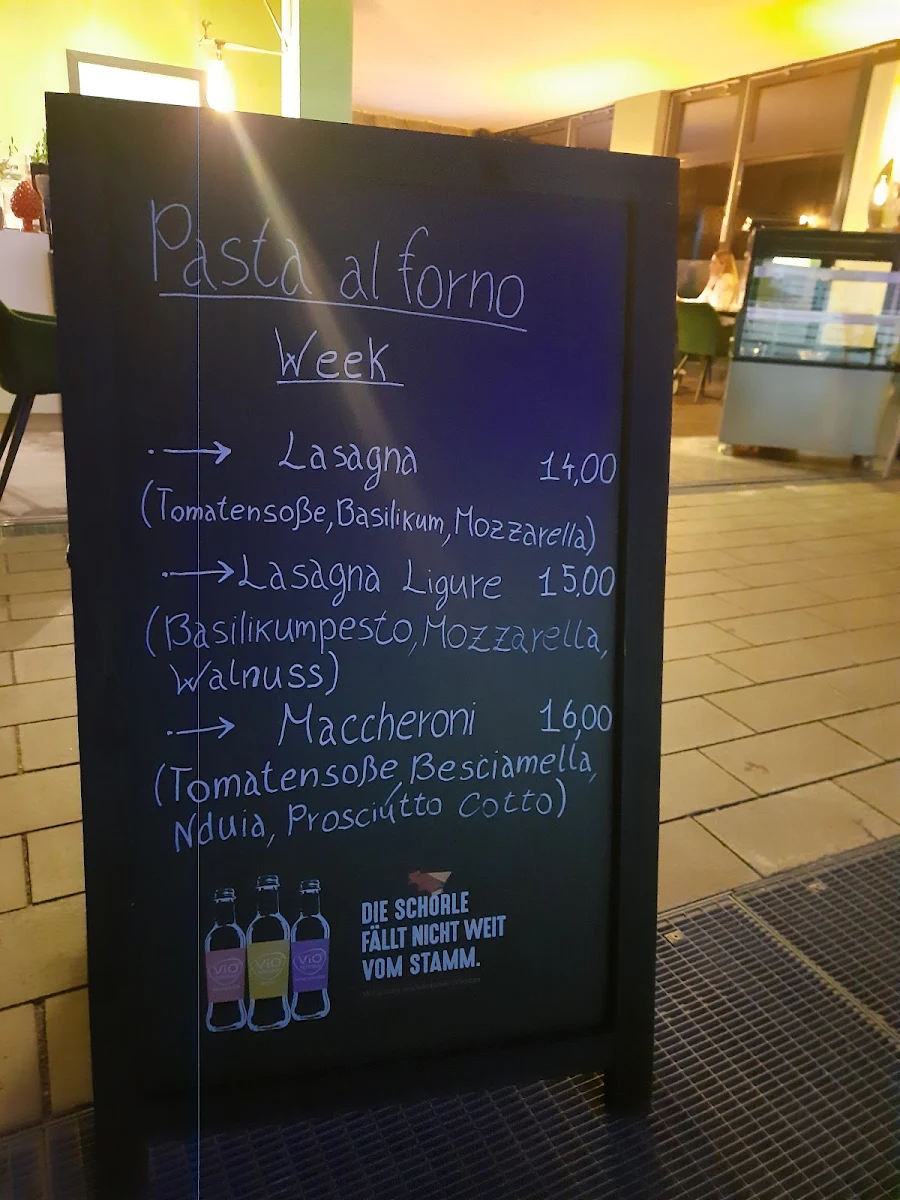 Pasta al forno
Week
Lasagna 14,00
(Tomatensoße, Basilikum, Mozzarella)
Lasagna Ligure 15,00
(Basilikumpesto, Mozzarella,
Walnuss)
Maccheroni 16,00
(Tomatensoße, Besciamella,
Nduia, Prosciútto Cotto)
ViO ViO ViO
DIE SCHORLE
FÄLLT NICHT WEIT
VOM STAMM.